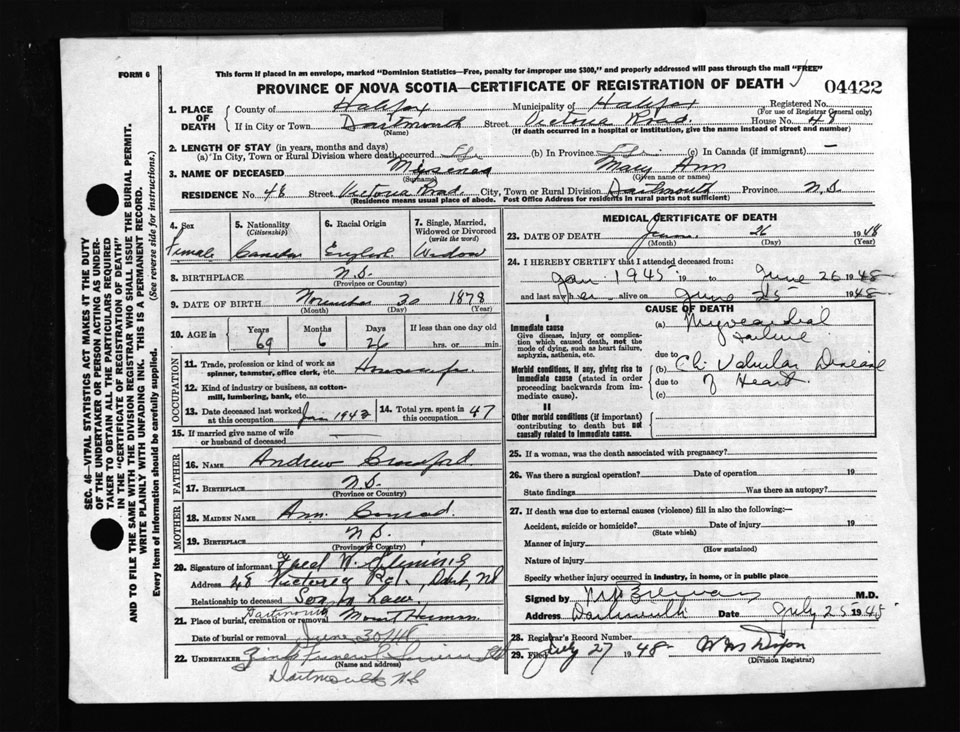 FORM 6
This form if placed in an envelope, marked "Dominion Statistics—Free, penalty for improper use $300," and properly addressed will pass through the mail "FREE"
PROVINCE OF NOVA SCOTIA—CERTIFICATE OF REGISTRATION OF DEATH
04422
1. PLACE OF DEATH
County of Halifax Municipality of Halifax Registered No.
(For use of Registrar General only)
If in City or Town Dartmouth Street Victoria Road. House No. 48
(Name) (If death occurred in a hospital or institution, give the name instead of street and number)
2. LENGTH OF STAY (in years, months and days)
(a) In City, Town or Rural Division where death occurred Life (b) In Province Life (c) In Canada (if immigrant) —
3. NAME OF DECEASED Mary Ann
(Surname) (Given name or names)
RESIDENCE No. 48 Street Victoria Road. City, Town or Rural Division Dartmouth Province N.S.
(Residence means usual place of abode. Post Office Address for residents in rural parts not sufficient)
4. Sex
Female
5. Nationality
(Citizenship)
Canadian
6. Racial Origin
English
7. Single, Married, Widowed or Divorced
(write the word)
Widow
8. BIRTHPLACE N.S.
(Province or Country)
9. DATE OF BIRTH November 30 1878
(Month) (Day) (Year)
10. AGE in Years Months Days If less than one day old
69 6 26 hrs. or min.
OCCUPATION
11. Trade, profession or kind of work as
spinner, teamster, office clerk, etc. Housewife.
12. Kind of industry or business, as cotton-
mill, lumbering, bank, etc.
13. Date deceased last worked
at this occupation
14. Total yrs. spent in
this occupation 47
15. If married give name of wife
or husband of deceased —
FATHER
16. NAME Andrew
17. BIRTHPLACE N.S.
(Province or Country)
MOTHER
18. MAIDEN NAME Ann Conrad.
19. BIRTHPLACE N.S.
(Province or Country)
20. Signature of informant Fred W.
Address 48 Victoria Rd., Dart, NS
Relationship to deceased Son in Law.
21. Place of burial, cremation or removal Dartmouth Mount Hermon.
Date of burial or removal June 30/48
22. UNDERTAKER Zinks Funeral Service Ltd
(Name and address)
Dartmouth NS
MEDICAL CERTIFICATE OF DEATH
23. DATE OF DEATH June 26 1948
(Month) (Day) (Year)
24. I HEREBY CERTIFY that I attended deceased from:
Jan 1945 19 to June 26 1948
and last saw her alive on June 25 1948
CAUSE OF DEATH
I
Immediate cause
Give disease, injury or complication which caused death, not the mode of dying, such as heart failure, asphyxia, asthenia, etc.
(a) Myocardial
failure
due to
Morbid conditions, if any, giving rise to immediate cause (stated in order proceeding backwards from immediate cause).
(b) Ch. Valvular Disease
due to of Heart.
(c)
II
Other morbid conditions (if important) contributing to death but not causally related to immediate cause.
25. If a woman, was the death associated with pregnancy?
26. Was there a surgical operation? Date of operation 19
State findings Was there an autopsy?
27. If death was due to external causes (violence) fill in also the following:—
Accident, suicide or homicide? Date of injury 19
(State which)
Manner of injury
(How sustained)
Nature of injury
Specify whether injury occurred in industry, in home, or in public place
Signed by M.D.
Address Dartmouth Date July 25 1948
28. Registrar's Record Number
29. Filed July 27 1948 Dixon
(Division Registrar)
SEC. 46—VITAL STATISTICS ACT MAKES IT THE DUTY
OF THE UNDERTAKER OR PERSON ACTING AS UNDER-
TAKER TO OBTAIN ALL THE PARTICULARS REQUIRED
IN THE "CERTIFICATE OF REGISTRATION OF DEATH"
AND TO FILE THE SAME WITH THE DIVISION REGISTRAR WHO SHALL ISSUE THE BURIAL PERMIT.
WRITE PLAINLY WITH UNFADING INK. THIS IS A PERMANENT RECORD.
Every item of information should be carefully supplied. (See reverse side for instructions.)